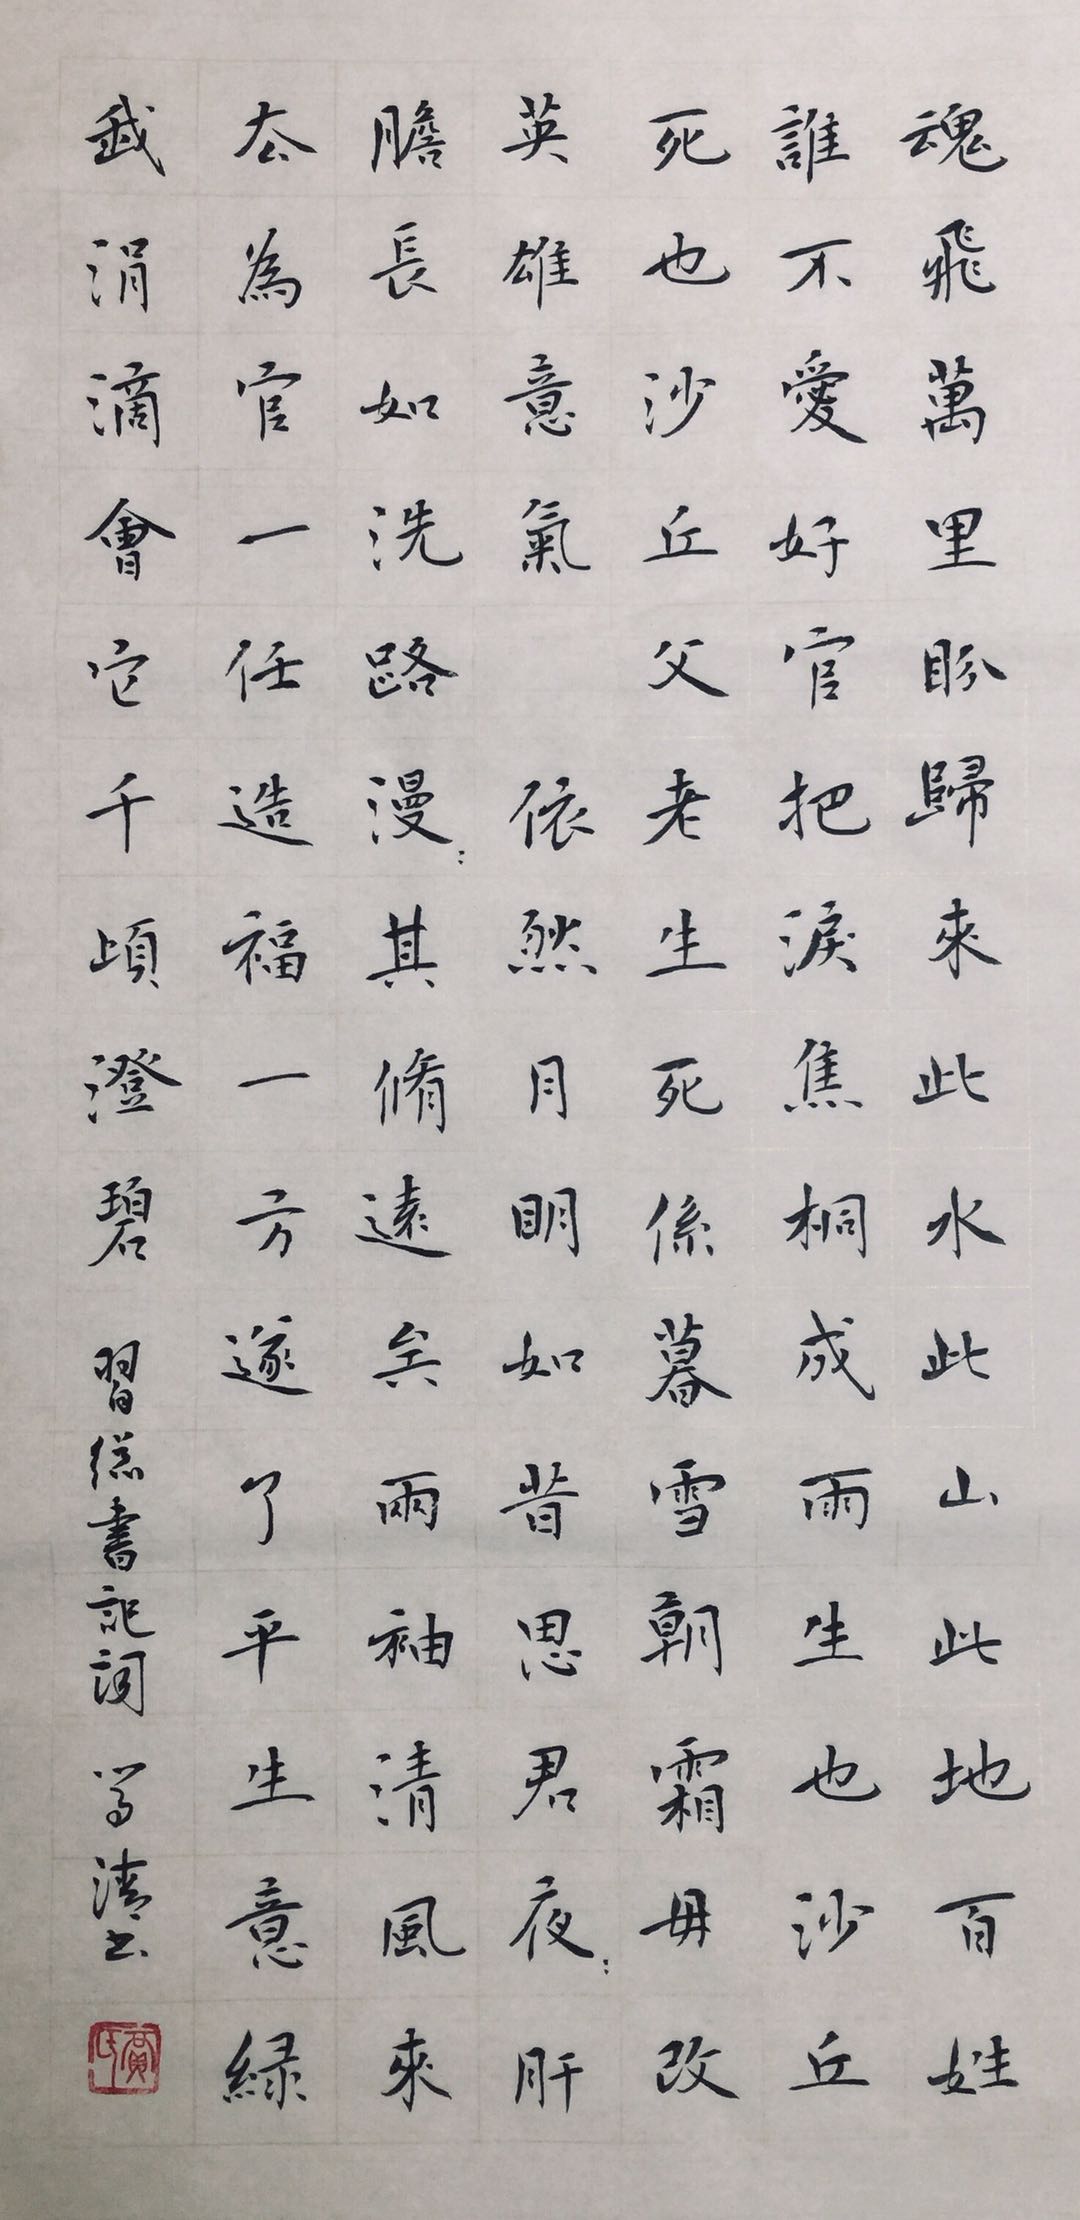 魂飛萬里盼歸來此水此山此地百姓
誰不愛好官把淚焦桐成雨生也沙丘
死也沙丘父老生死係暮雪朝霜毋改
英雄意氣 依然月明如昔思君夜:肝
膽長如洗路漫:其脩遠矣兩袖清風來
去為官一任造福一方遂了平生意綠
我涓滴會它千頃澄碧 習總書記詞
清書